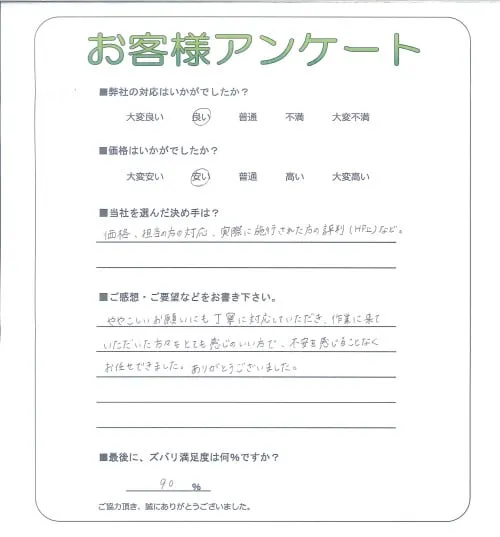 お客様アンケート
■弊社の対応はいかがでしたか？
大変良い 良い 普通 不満 大変不満
■価格はいかがでしたか？
大変安い 安い 普通 高い 大変高い
■当社を選んだ決め手は？
価格、担当の方の対応、実際に施行された方の評判(HP上)など。
■ご感想・ご要望などをお書き下さい。
ややこしいお願いにも丁寧に対応していただき、作業に来て
いただいた方々もとても感じのいい方で、不安を感じることなく
お任せできました。ありがとうございました。
■最後に、ズバリ満足度は何％ですか？
90 ％
ご協力頂き、誠にありがとうございました。